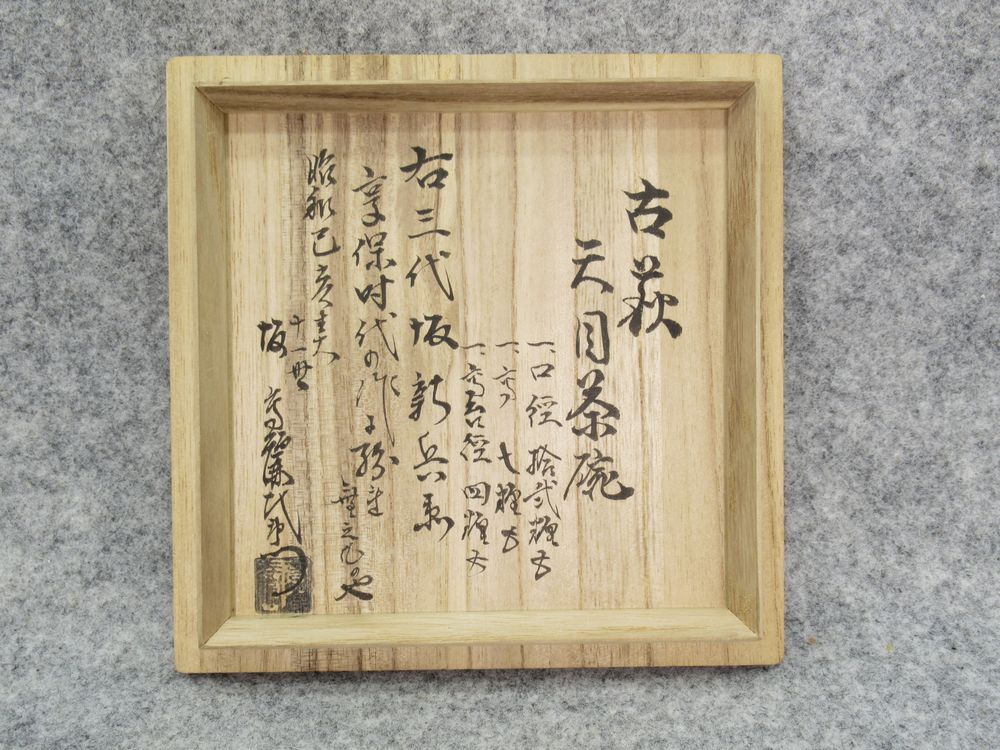 古萩
天目茶碗
一、口径 拾弐糎五
一、高サ 七糎五
一、高台径 四糎五
右三代坂新兵衛
享保時代の作ニ紛連
無之もの也
昭和己亥
十一世
坂 高麗左衛門